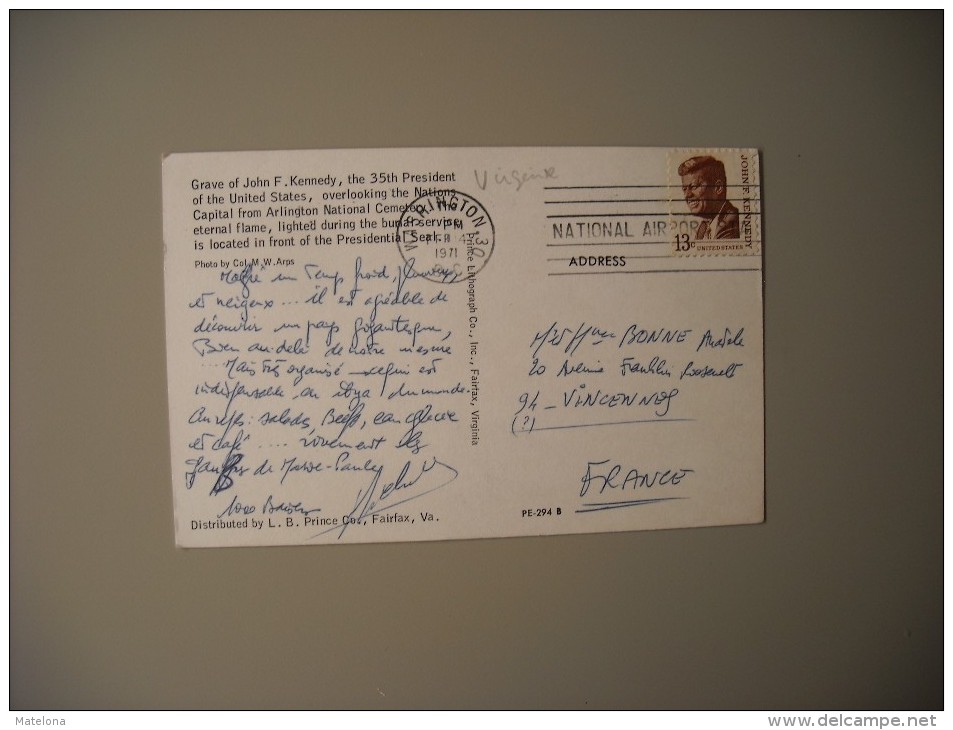 Grave of John F. Kennedy, the 35th President
of the United States, overlooking the Nations
Capital from Arlington National Cemetery. The
eternal flame, lighted during the burial service,
is located in front of the Presidential Seal.
Photo by Col. M.W. Arps
Malgré un temps froid,
et neigeux ... il est agréable de
découvrir un pays gigantesque,
Bien au-delà de notre mesure
.... Mais très organisé - ce qui est
indispensable,
salades, Beef, eau glacée
et café .... vivement les
de Marie-Paule
1000 Baisers
Distributed by L. B. Prince Co., Fairfax, Va.
Prince Lithograph Co., Inc., Fairfax, Virginia
Virginie
PM
1971
NATIONAL AIRPORT
JOHN F. KENNEDY
13c
UNITED STATES
ADDRESS
BONNE
20 Avenue Franklin Roosevelt
94 - VINCENNES
(?)
FRANCE
PE-294 B
Matelona
www.delcampe.net